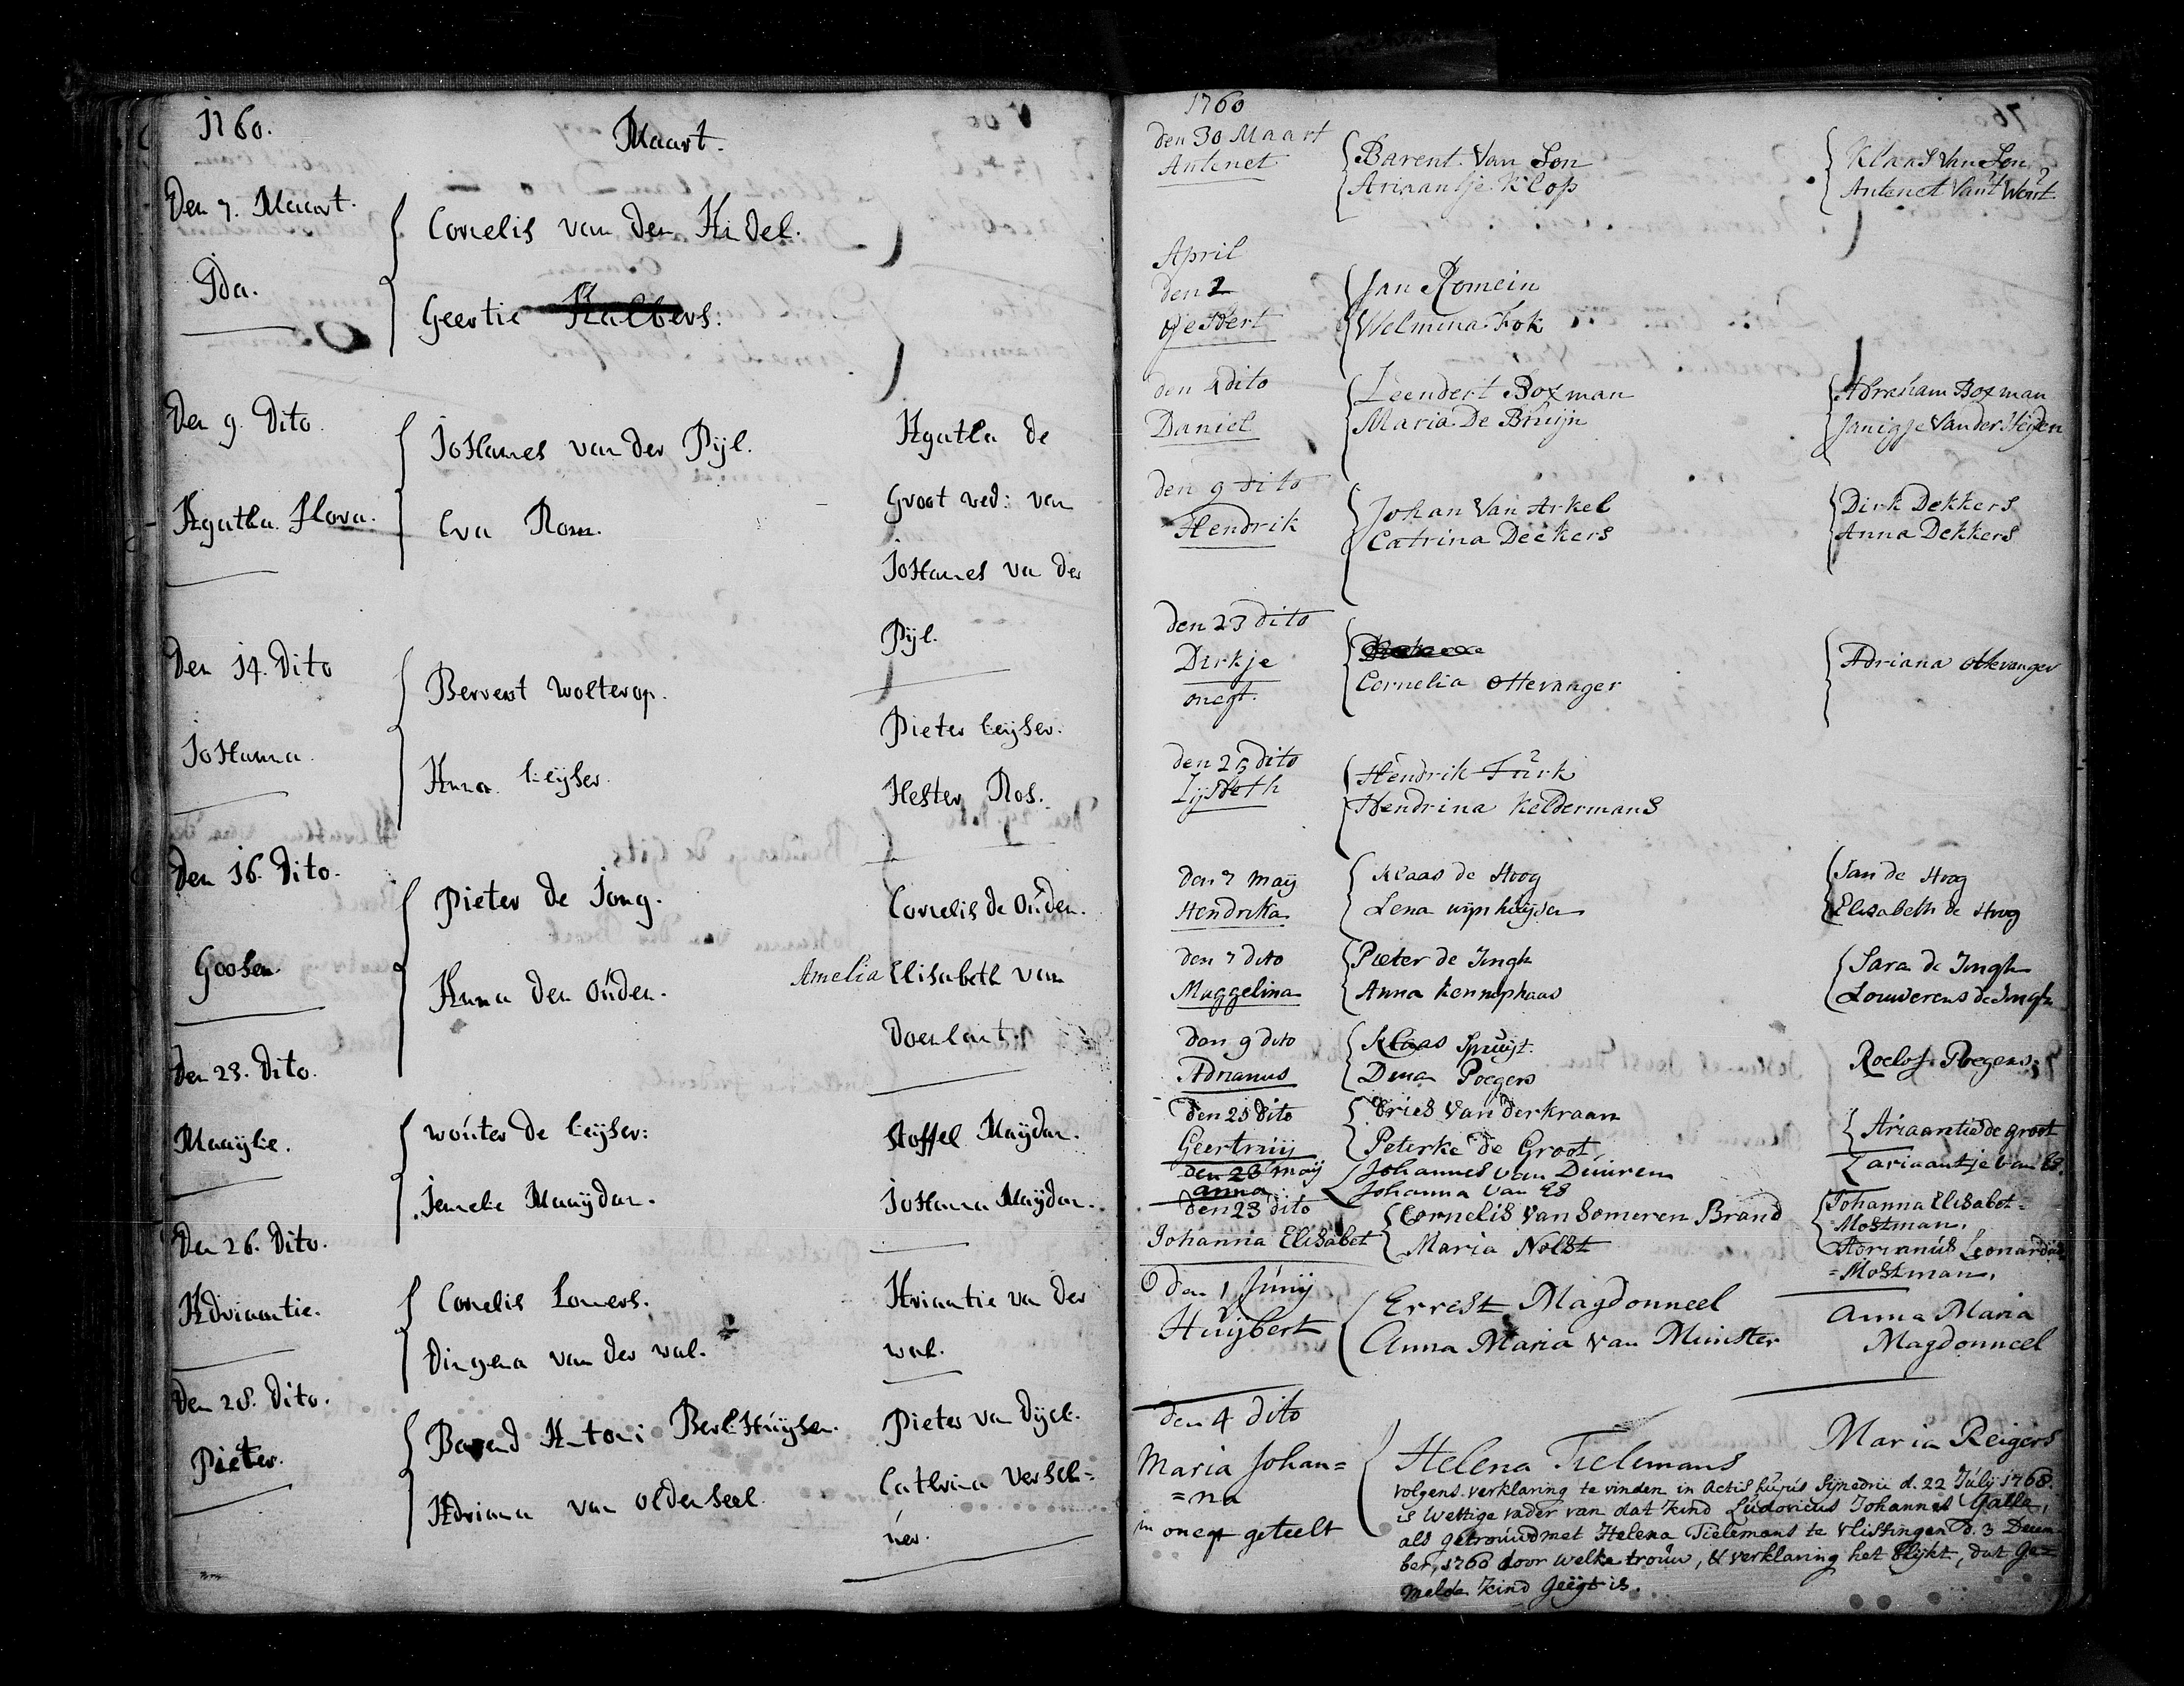 1760.
Maart.
Den 7. Maart.
Cornelis van den Hidel.
Ida.
Geertie Kalbers.
Den 9. Dito.
Johannes van der Pijl.
Agatha de
Agatha Flora.
Eva Rom.
Groot wed: van
Johannes van der
Pijl.
Den 14. Dito
Berent Wolterop.
Pieter Keyser.
Johanna.
Anna Keyser.
Hester Ros.
Den 16. Dito.
Pieter de Jong.
Cornelis de Ouden.
Goosen.
Anna den Ouden.
Amelia Elisabeth van
Doerlant.
Den 23. Dito.
Wouter de Keyser:
Stoffel Maydan.
Maaijke.
Jenneke Maaydan.
Johanna Maydan.
Den 26. Dito.
Cornelis Louers.
Ariaantie van der
Adriaantie.
Dingena van der wal.
wal.
Den 28. Dito.
Barend Antoni Berk Huysen.
Pieter van Dijck.
Pieter.
Adriana van Olden seel.
Cathrina Versch-
ner.
1760
Den 30 Maart
Barent Van Son
Klaas Van Son
Antenet
Ariaantje Klop
Antenet Van't Wout
April
den 2
Jan Romein
Gijsbert
Welmina Fok
den 4 dito
Leendert Boxman
Abraham Boxman
Daniel
Maria De Bruijn
Janigje Vander Heijden
den 9 dito
Johan Van Arkel
Dirk Dekkers
Hendrik
Catrina Deckers
Anna Dekkers
den 23 dito
Dirkje
Cornelia Ottevanger
Adriana Ottevanger
onegt.
den 25 dito
Hendrik Turk
Lijsbeth
Hendrina Keldermans
den 7 maij
Klaas de Hoog
Jan de Hoog
Hendrika
Lena wijnhuijsen
Elisabeth de Hoog
den 7 dito
Pieter de Jongh
Sara de Jongh
Maggelina
Anna Kennephaas
Louwerens de Jongh
den 9 dito
Klaas Spruijt.
Roelof Ploegers.
Adrianus
Dina Poegers
den 25 dito
Dries Van der kraan
Ariaantie de groot
Geertruij
Peterke de Groot
den 23 maij
Johannes van Duuren
ariaantje van Es.
anna
Johanna van Es
den 23 dito
Cornelis van Someren Brand
Johanna Elisabet=
Mostman.
Johanna Elisabet
Maria Nolst
Adrianus Leonardus
=Mostman.
den 1 Junij
Errest Magdonneel
Anna Maria
Huijbert
Anna Maria van Munster
Magdonneel
den 4 dito
Maria Johan=
Helena Tielemans
Maria Reigers
=na
in onegt geteelt
volgens verklaring te vinden in Actis hujus Synedrii d. 22 Julij 1768.
is Wettige vader van dat Kind Ludovicus Johannes Galle,
als getrouwd met Helena Tielemans te Vlissingen d. 3 Decem
ber, 1760 door welke trouw, & verklaring het blijkt, dat ge=
melde Kind Geëgt is.